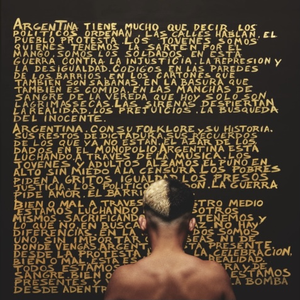 ARGENTINA TIENE MUCHO QUE DECIR, LOS
POLITICOS ORDENAN, LAS CALLES HABLAN, EL
PUEBLO PROTESTA. LOS JOVENES SOMOS
QUIENES TENEMOS LA SARTEN POR EL
MANGO, SOMOS LOS SOLDADOS EN ESTA
GUERRA CONTRA LA INJUSTICIA, LA REPRESION Y
LA DESIGUALDAD. CODIGOS EN LAS PAREDES
DE LOS BARRIOS, EN LOS CARTONES QUE
TAMBIEN SON SABANAS, EN LA BASURA QUE
TAMBIEN ES COMIDA, EN LAS MANCHAS DE
SANGRE DE LA VEREDA QUE HOY SOLO SON
LAGRIMAS SECAS. LAS SIRENAS DESPIERTAN
LA REALIDAD, LOS PREJUICIOS, LA BUSQUEDA
DEL INOCENTE.
ARGENTINA, CON SU FOLKLORE Y SU HISTORIA,
SUS RESTOS DE DICTADURA, SUS RECUERDOS
DE LOS QUE YA NO ESTAN, EL AZAR DE LOS
DADOS EN EL MONOPOLIO ARGENTINA ESTA
LUCHANDO A TRAVES DE LA MUSICA, LOS
JOVENES Y ADULTOS ALZAMOS EL PUÑO EN
ALTO SIN MIEDO A LA CENSURA. LOS POBRES
PIDEN A GRITOS IGUALDAD, LOS PRESOS
JUSTICIA, LOS POLITICOS LA GUERRA
PIDE AMOR, EL BARRIO
BIEN O MAL A TRAVES NUESTRO MEDIO
ESTAMOS LUCHANDO NOSOTROS
MISMOS, SACRIFICANDO TENEMOS Y
LO QUE NO, EN BUSCA NO HAY
DIFERENCIAS EN DISCU SOMOS
UNO, SIN IMPORTAR SEAS, NI DE
DONDE VENGAS, ARGEN PRESENTE
DESDE LA PROTESTA LA CELEBRACION,
BIEN O MAL LA REALIDAD,
TODOS ESTAMOS HAY
SANGRE, BIEN O ESTAMOS
PRESENTES Y LA BOMBA
DESDE ADENTRO